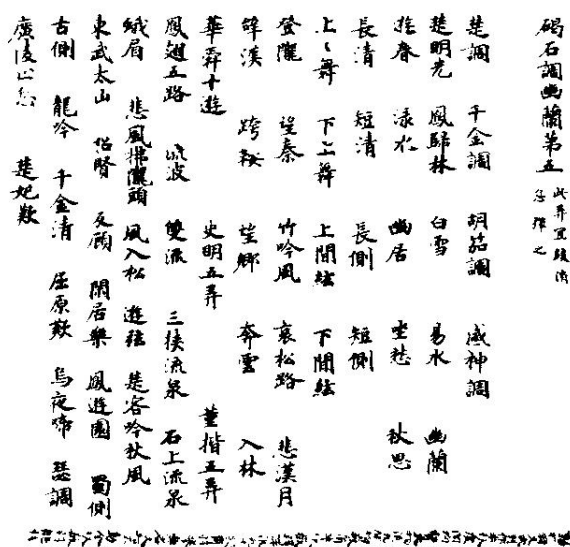 碣石調幽蘭第五 此弄宜緩消
息彈之
楚調 千金調 胡笳調 感神調
楚明光 鳳歸林 白雪 易水 幽蘭
遊春 淥水 幽居 坐愁 秋思
長清 短清 長側 短側
上〻舞 下上舞 上間絃 下間絃
登隴 望秦 竹吟風 哀松路 悲漢月
辝漢 跨鞍 望鄉 奔雲 入林
華舜十遊 史明五弄 董揩五弄
鳳翅五路 流波 雙流 三挾流泉 石上流泉
蛾眉 悲風拂隴頭 風入松 遊絃 楚客吟秋風
東武太山 招賢 反顧 閑居樂 鳳遊園 蜀側
古側 龍吟 千金清 屈原歎 烏夜啼 瑟調
廣陵止息 楚妃歎